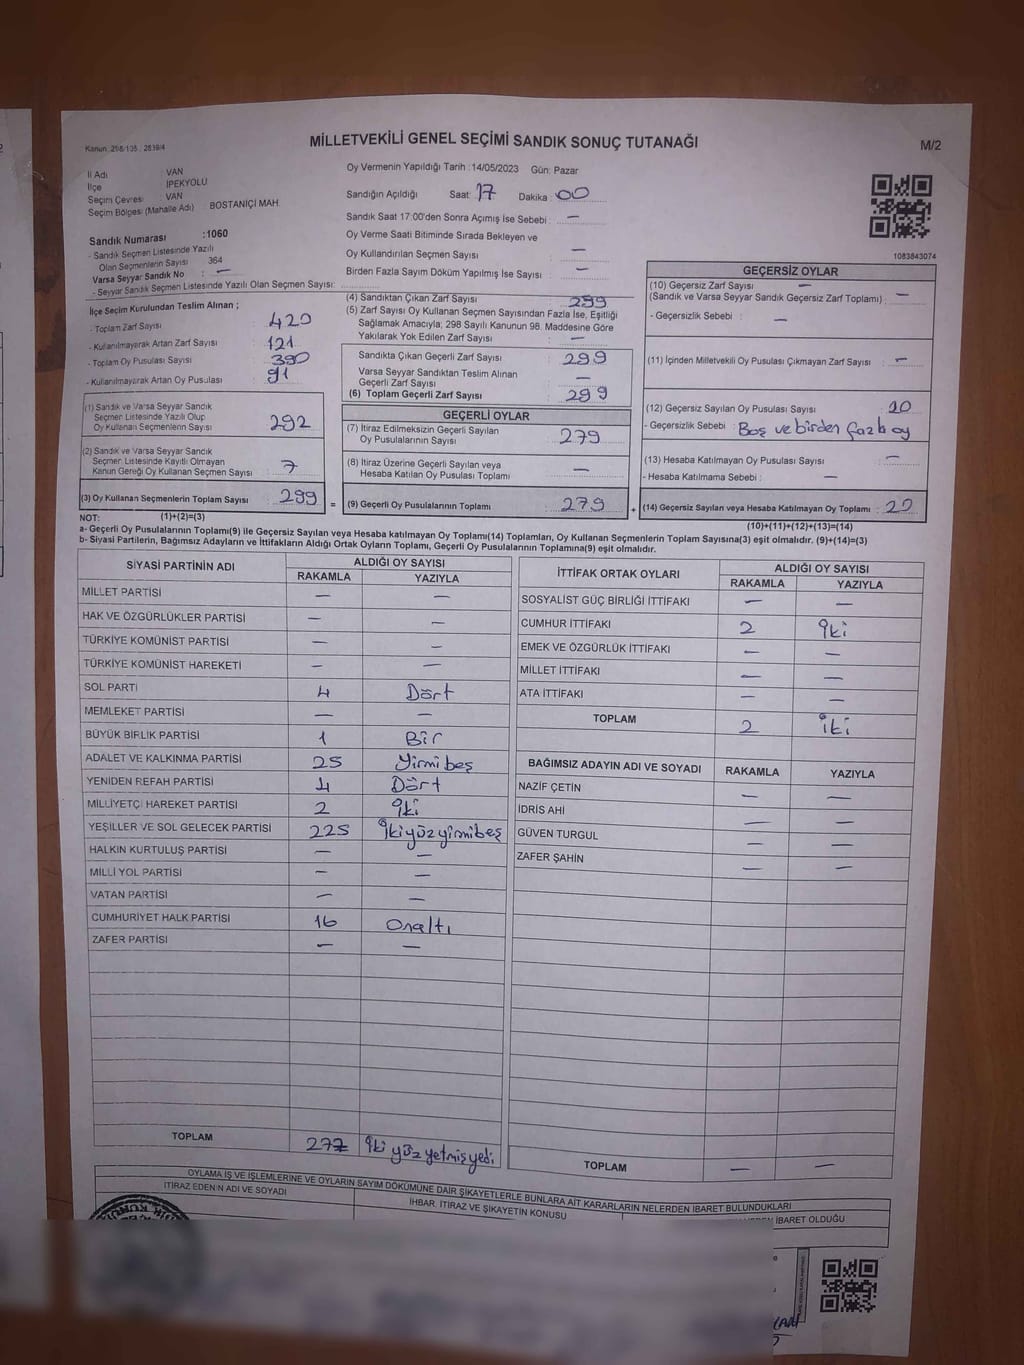 MİLLETVEKİLİ GENEL SEÇİMİ SANDIK SONUÇ TUTANAĞI
M/2
İl Adı : VAN
İlçe : İPEKYOLU
Seçim Çevresi : VAN
Seçim Bölgesi (Mahalle Adı) BOSTANİÇİ MAH.
Oy Vermenin Yapıldığı Tarih :14/05/2023 Gün: Pazar
Sandığın Açıldığı Saat: 17 Dakika: 00
Sandık Saat 17:00'den Sonra Açımış İse Sebebi : —
Oy Verme Saati Bitiminde Sırada Bekleyen ve
Oy Kullandırılan Seçmen Sayısı —
Birden Fazla Sayım Döküm Yapılmış İse Sayısı : —
1083843074
Sandık Numarası :1060
- Sandık Seçmen Listesinde Yazılı
Olan Seçmenlerin Sayısı 364
Varsa Seyyar Sandık No : —
- Seyyar Sandık Seçmen Listesinde Yazılı Olan Seçmen Sayısı:
İlçe Seçim Kurulundan Teslim Alınan ;
- Toplam Zarf Sayısı 420
- Kullanılmayarak Artan Zarf Sayısı : 121
- Toplam Oy Pusulası Sayısı : 390
- Kullanılmayarak Artan Oy Pusulası : 91
(1) Sandık ve Varsa Seyyar Sandık
Seçmen Listesinde Yazılı Olup
Oy Kullanan Seçmenlerin Sayısı : 292
(2) Sandık ve Varsa Seyyar Sandık
Seçmen Listesinde Kayıtlı Olmayan
Kanun Gereği Oy Kullanan Seçmen Sayısı : 7
(3) Oy Kullanan Seçmenlerin Toplam Sayısı : 299
(1)+(2)=(3)
(4) Sandıktan Çıkan Zarf Sayısı : 299
(5) Zarf Sayısı Oy Kullanan Seçmen Sayısından Fazla İse, Eşitliği
Sağlamak Amacıyla; 298 Sayılı Kanunun 98. Maddesine Göre
Yakılarak Yok Edilen Zarf Sayısı : —
Sandıkta Çıkan Geçerli Zarf Sayısı : 299
Varsa Seyyar Sandıktan Teslim Alınan
Geçerli Zarf Sayısı : —
(6) Toplam Geçerli Zarf Sayısı : 299
GEÇERLİ OYLAR
(7) İtiraz Edilmeksizin Geçerli Sayılan
Oy Pusulalarının Sayısı : 279
(8) İtiraz Üzerine Geçerli Sayılan veya
Hesaba Katılan Oy Pusulası Toplamı : —
= (9) Geçerli Oy Pusulalarının Toplamı : 279
GEÇERSİZ OYLAR
(10) Geçersiz Zarf Sayısı —
(Sandık ve Varsa Seyyar Sandık Geçersiz Zarf Toplamı) : —
- Geçersizlik Sebebi : —
(11) İçinden Milletvekili Oy Pusulası Çıkmayan Zarf Sayısı : —
(12) Geçersiz Sayılan Oy Pusulası Sayısı : 20
- Geçersizlik Sebebi : Boş ve birden fazla oy
(13) Hesaba Katılmayan Oy Pusulası Sayısı : —
- Hesaba Katılmama Sebebi : —
+ (14) Geçersiz Sayılan veya Hesaba Katılmayan Oy Toplamı : 20
(10)+(11)+(12)+(13)=(14)
NOT:
a- Geçerli Oy Pusulalarının Toplamı(9) ile Geçersiz Sayılan veya Hesaba katılmayan Oy Toplamı(14) Toplamları, Oy Kullanan Seçmenlerin Toplam Sayısına(3) eşit olmalıdır. (9)+(14)=(3)
b- Siyasi Partilerin, Bağımsız Adayların ve İttifakların Aldığı Ortak Oyların Toplamı, Geçerli Oy Pusulalarının Toplamına(9) eşit olmalıdır.
SİYASİ PARTİNİN ADI ALDIĞI OY SAYISI
RAKAMLA YAZIYLA
MİLLET PARTİSİ — —
HAK VE ÖZGÜRLÜKLER PARTİSİ — —
TÜRKİYE KOMÜNİST PARTİSİ — —
TÜRKİYE KOMÜNİST HAREKETİ — —
SOL PARTİ 4 Dört
MEMLEKET PARTİSİ — —
BÜYÜK BİRLİK PARTİSİ 1 Bir
ADALET VE KALKINMA PARTİSİ 25 Yirmi beş
YENİDEN REFAH PARTİSİ 4 Dört
MİLLİYETÇİ HAREKET PARTİSİ 2 İki
YEŞİLLER VE SOL GELECEK PARTİSİ 225 İki yüz yirmi beş
HALKIN KURTULUŞ PARTİSİ — —
MİLLİ YOL PARTİSİ — —
VATAN PARTİSİ — —
CUMHURİYET HALK PARTİSİ 16 Onaltı
ZAFER PARTİSİ — —
TOPLAM 277 İki yüz yetmiş yedi
İTTİFAK ORTAK OYLARI ALDIĞI OY SAYISI
RAKAMLA YAZIYLA
SOSYALİST GÜÇ BİRLİĞİ İTTİFAKI — —
CUMHUR İTTİFAKI 2 İki
EMEK VE ÖZGÜRLÜK İTTİFAKI — —
MİLLET İTTİFAKI — —
ATA İTTİFAKI — —
TOPLAM 2 İki
BAĞIMSIZ ADAYIN ADI VE SOYADI RAKAMLA YAZIYLA
NAZİF ÇETİN — —
İDRİS AHİ — —
GÜVEN TURGUL — —
ZAFER ŞAHİN — —
TOPLAM — —
OYLAMA İŞ VE İŞLEMLERİNE VE OYLARIN SAYIM DÖKÜMÜNE DAİR ŞİKAYETLERLE BUNLARA AİT KARARLARIN NELERDEN İBARET BULUNDUKLARI
İTİRAZ EDENİN ADI VE SOYADI
İHBAR, İTİRAZ VE ŞİKAYETİN KONUSU
İBARET OLDUĞU